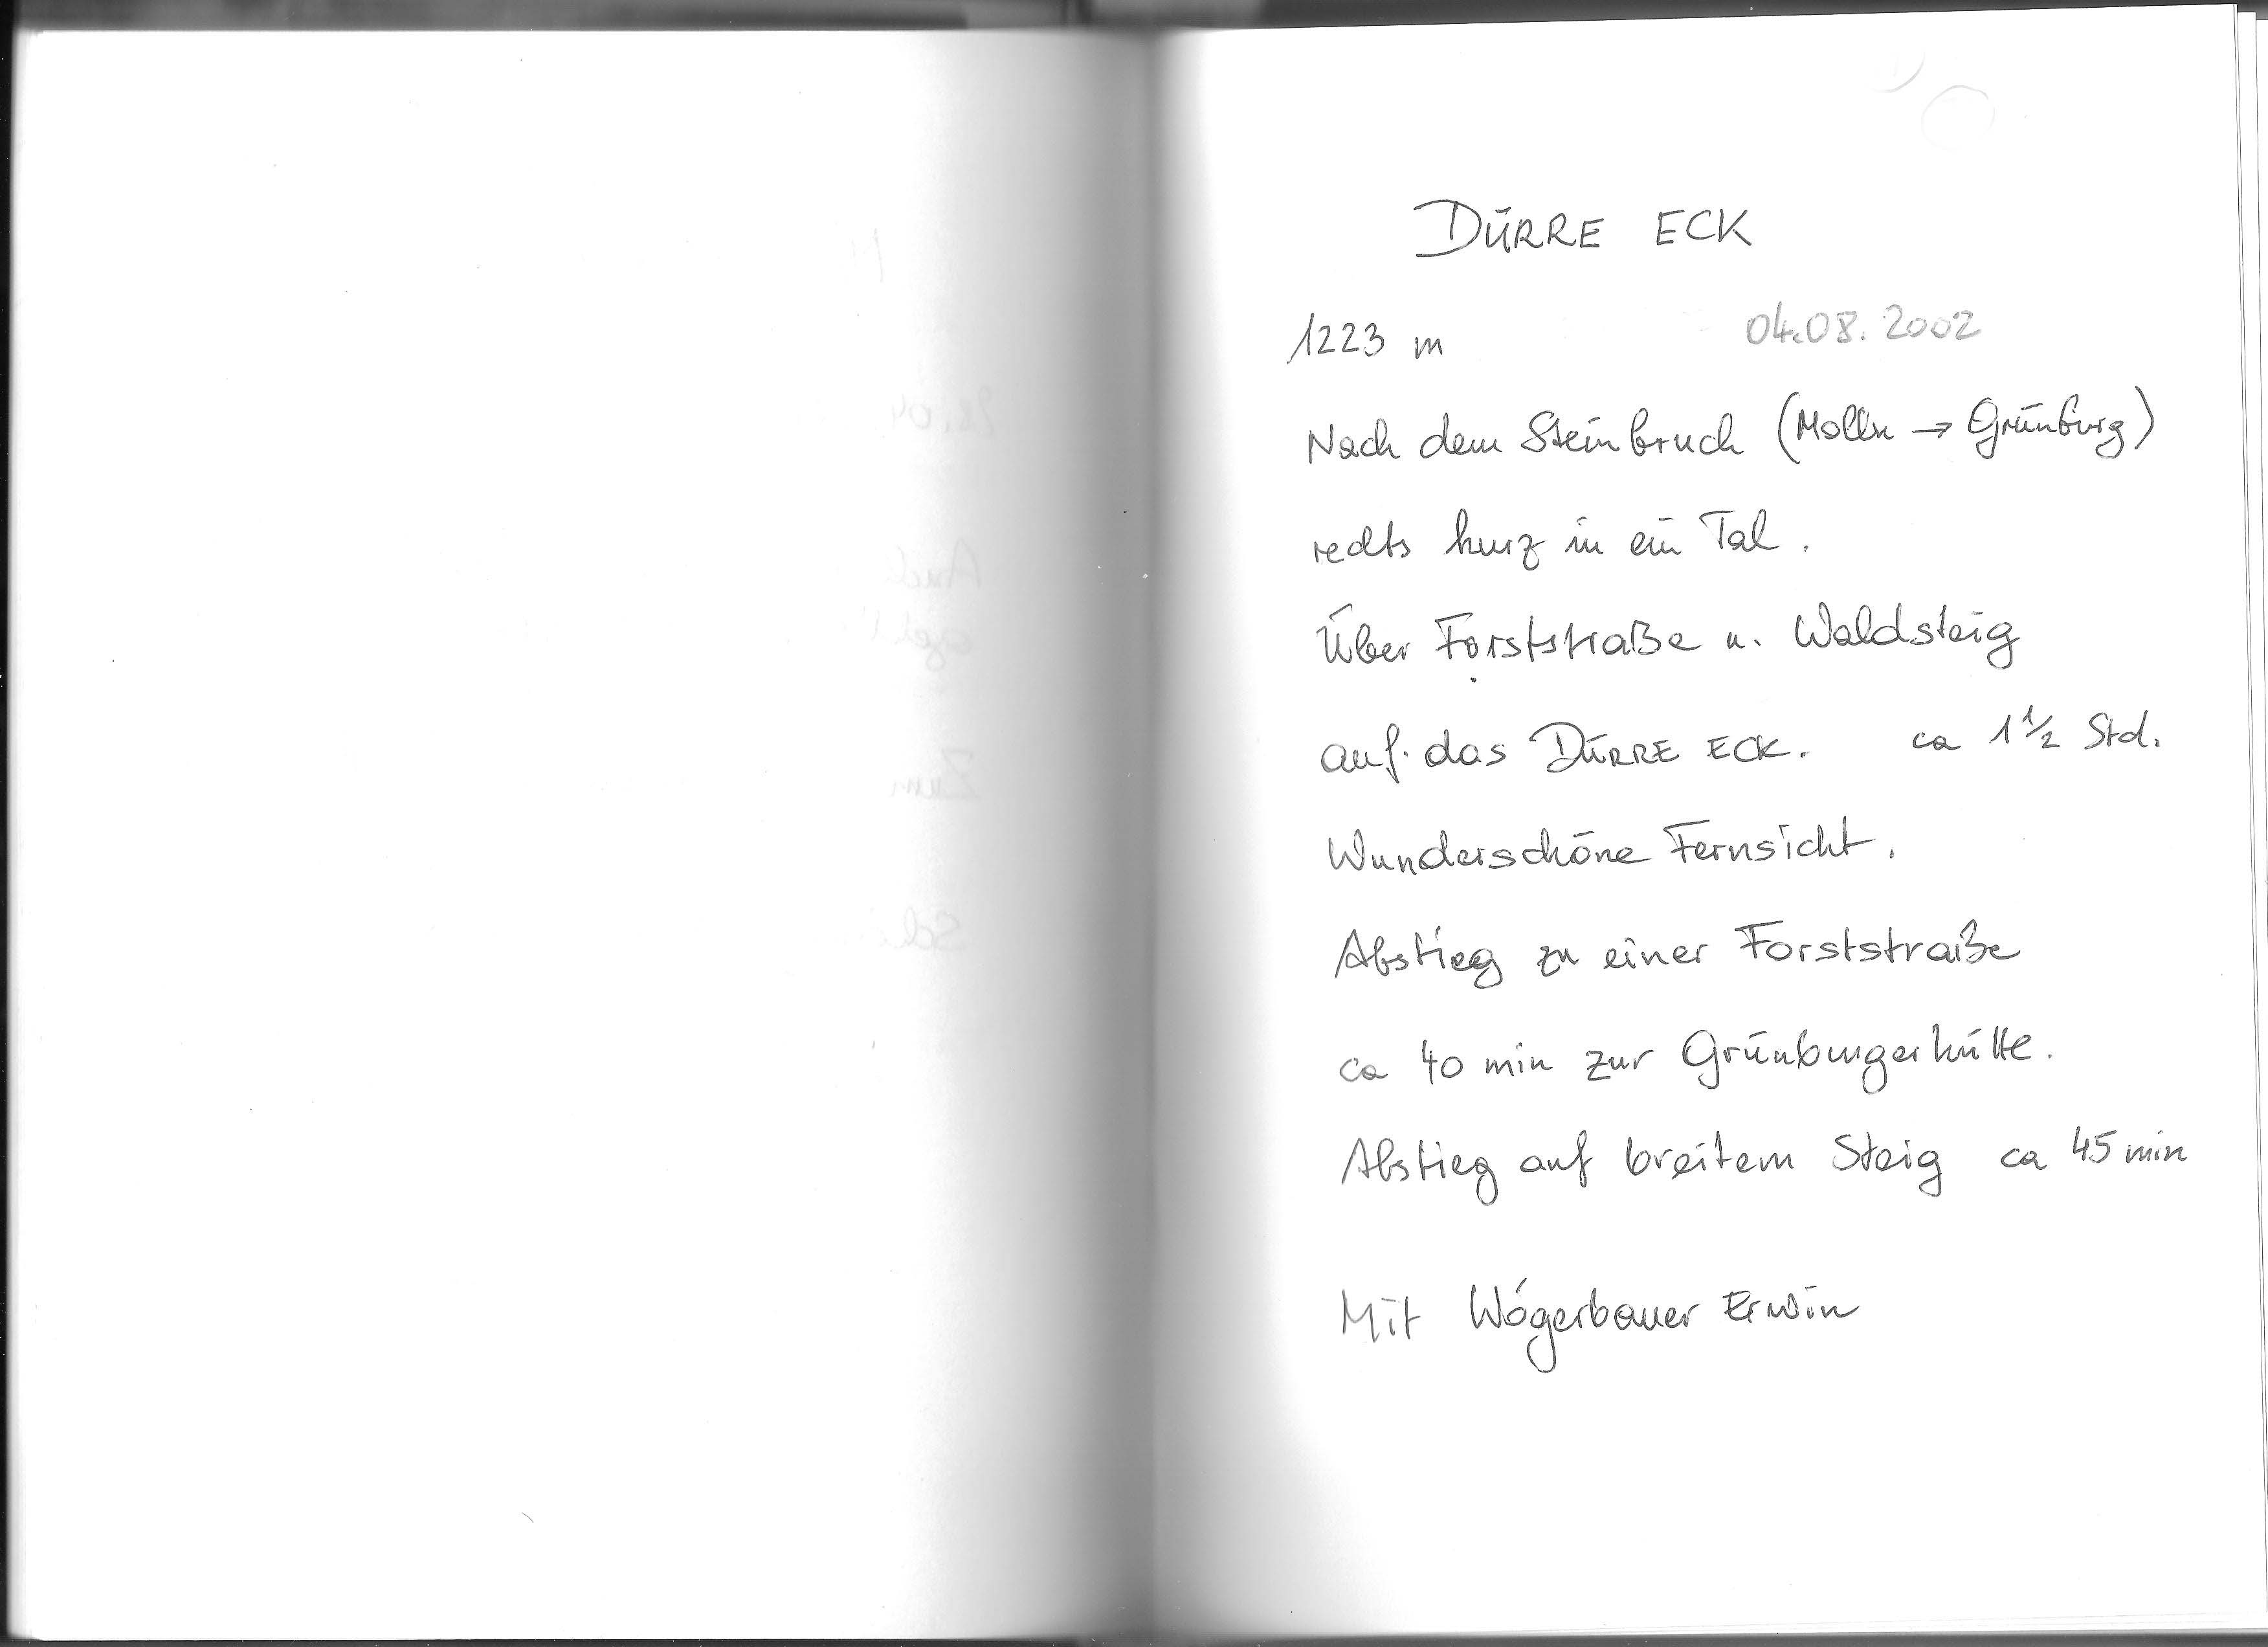 DÜRRE ECK
1223 m 04.08.2002
Nach dem Steinbruch (Molln → Grünburg)
rechts kurz in ein Tal.
Über Forststraße u. Waldsteig
auf das DÜRRE ECK. ca 1 1/2 Std.
Wunderschöne Fernsicht.
Abstieg zu einer Forststraße
ca 40 min zur Grünburgerhütte.
Abstieg auf breitem Steig ca 45 min
Mit Wögerbauer Erwin